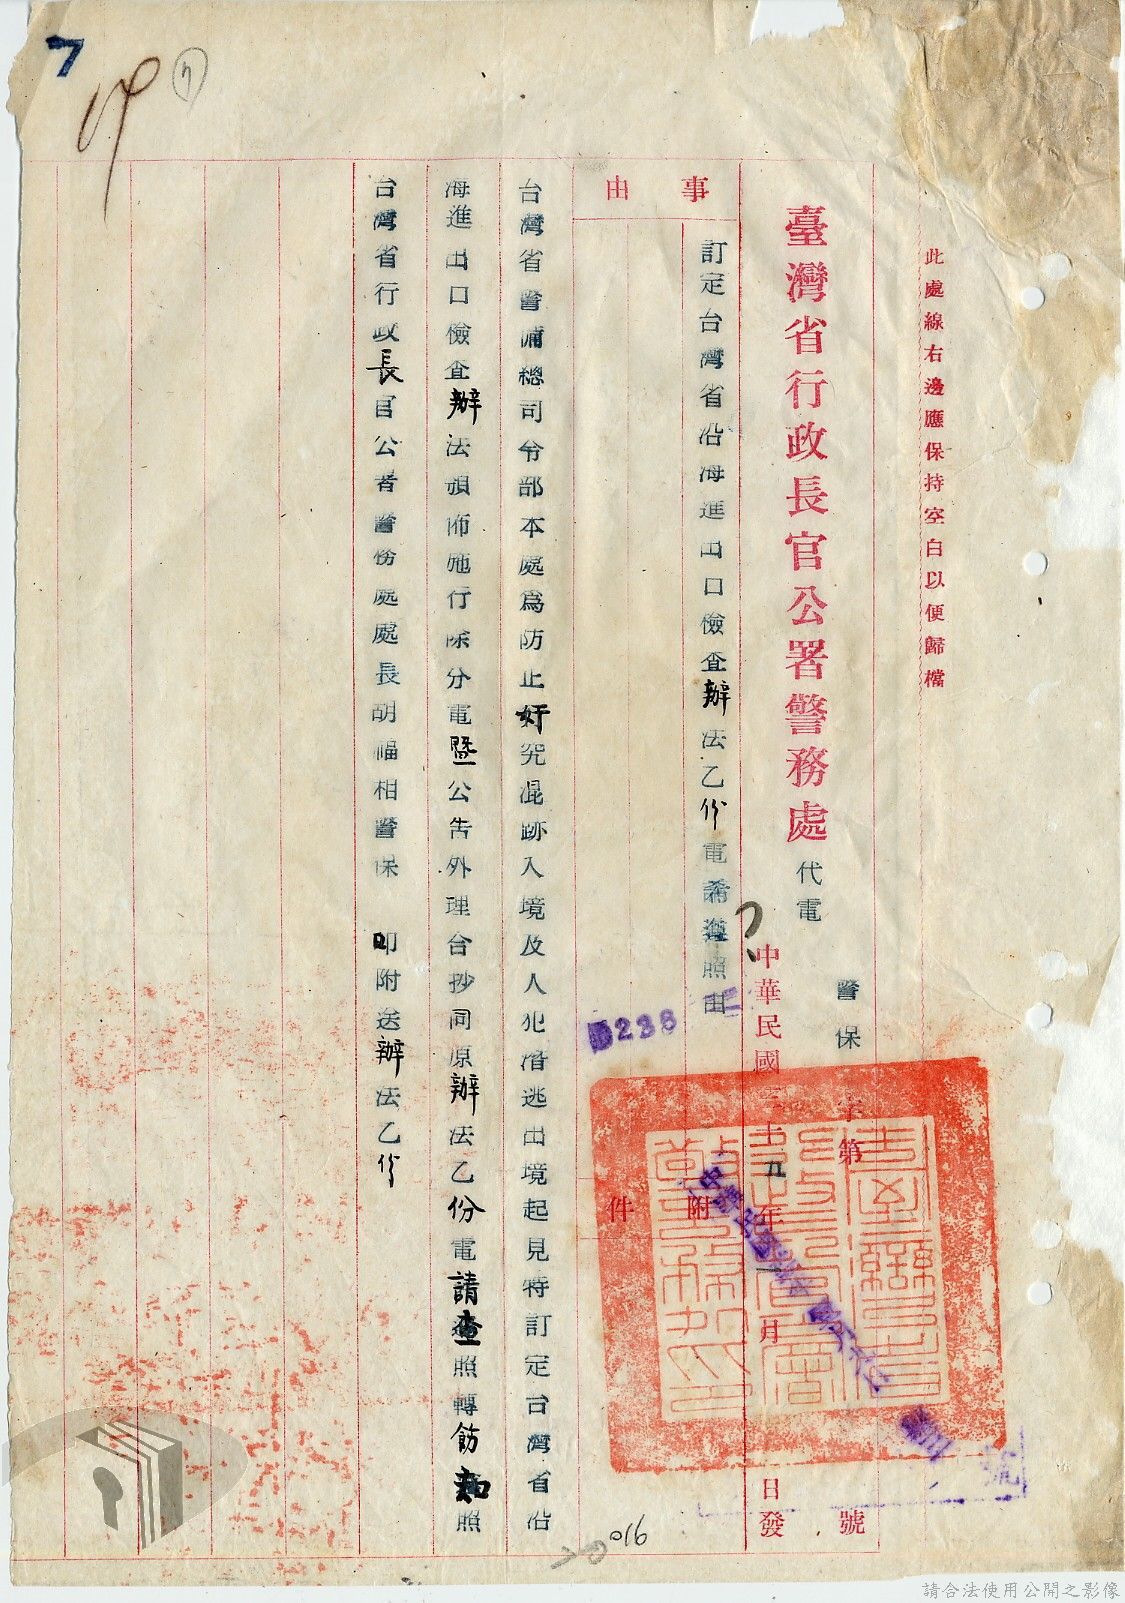 此處線右邊應保持空白以便歸檔
臺灣省行政長官公署警務處
代電
警保字第 號
中華民國三十五年 月 日發
事由
訂定台灣省沿海進出口檢查辦法乙份電希遵照由
附件
238
台灣省警備總司令部本處為防止奸宄混跡入境及人犯潛逃出境起見特訂定台灣省沿
海進出口檢查辦法頒佈施行除分電暨公告外理合抄同原辦法乙份電請查照轉飭知照
台灣省行政長官公署警務處處長胡福相警保 叩附送辦法乙份
7
7
016
請合法使用公開之影像